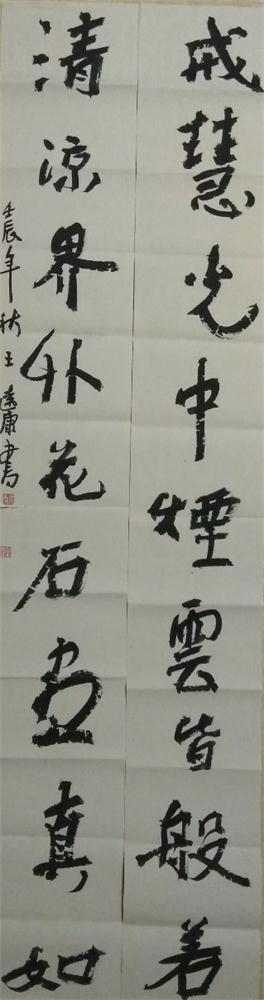 戒慧光中煙雲皆般若
清涼界外花石盡真如
壬辰年秋王遠康书